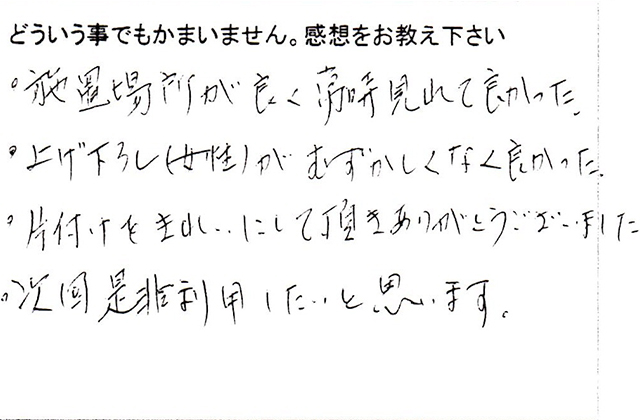 どういう事でもかまいません。感想をお教え下さい
。施置場所が良く 見れて良かった。
。上げ下ろし(女性)がむずかしくなく良かった。
。片付けをきれいにして頂きありがとうございました
。次回是非利用したいと思います。